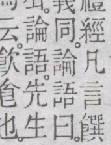 禮經凡言饌
義同論語曰
論語先生
云㱃食也